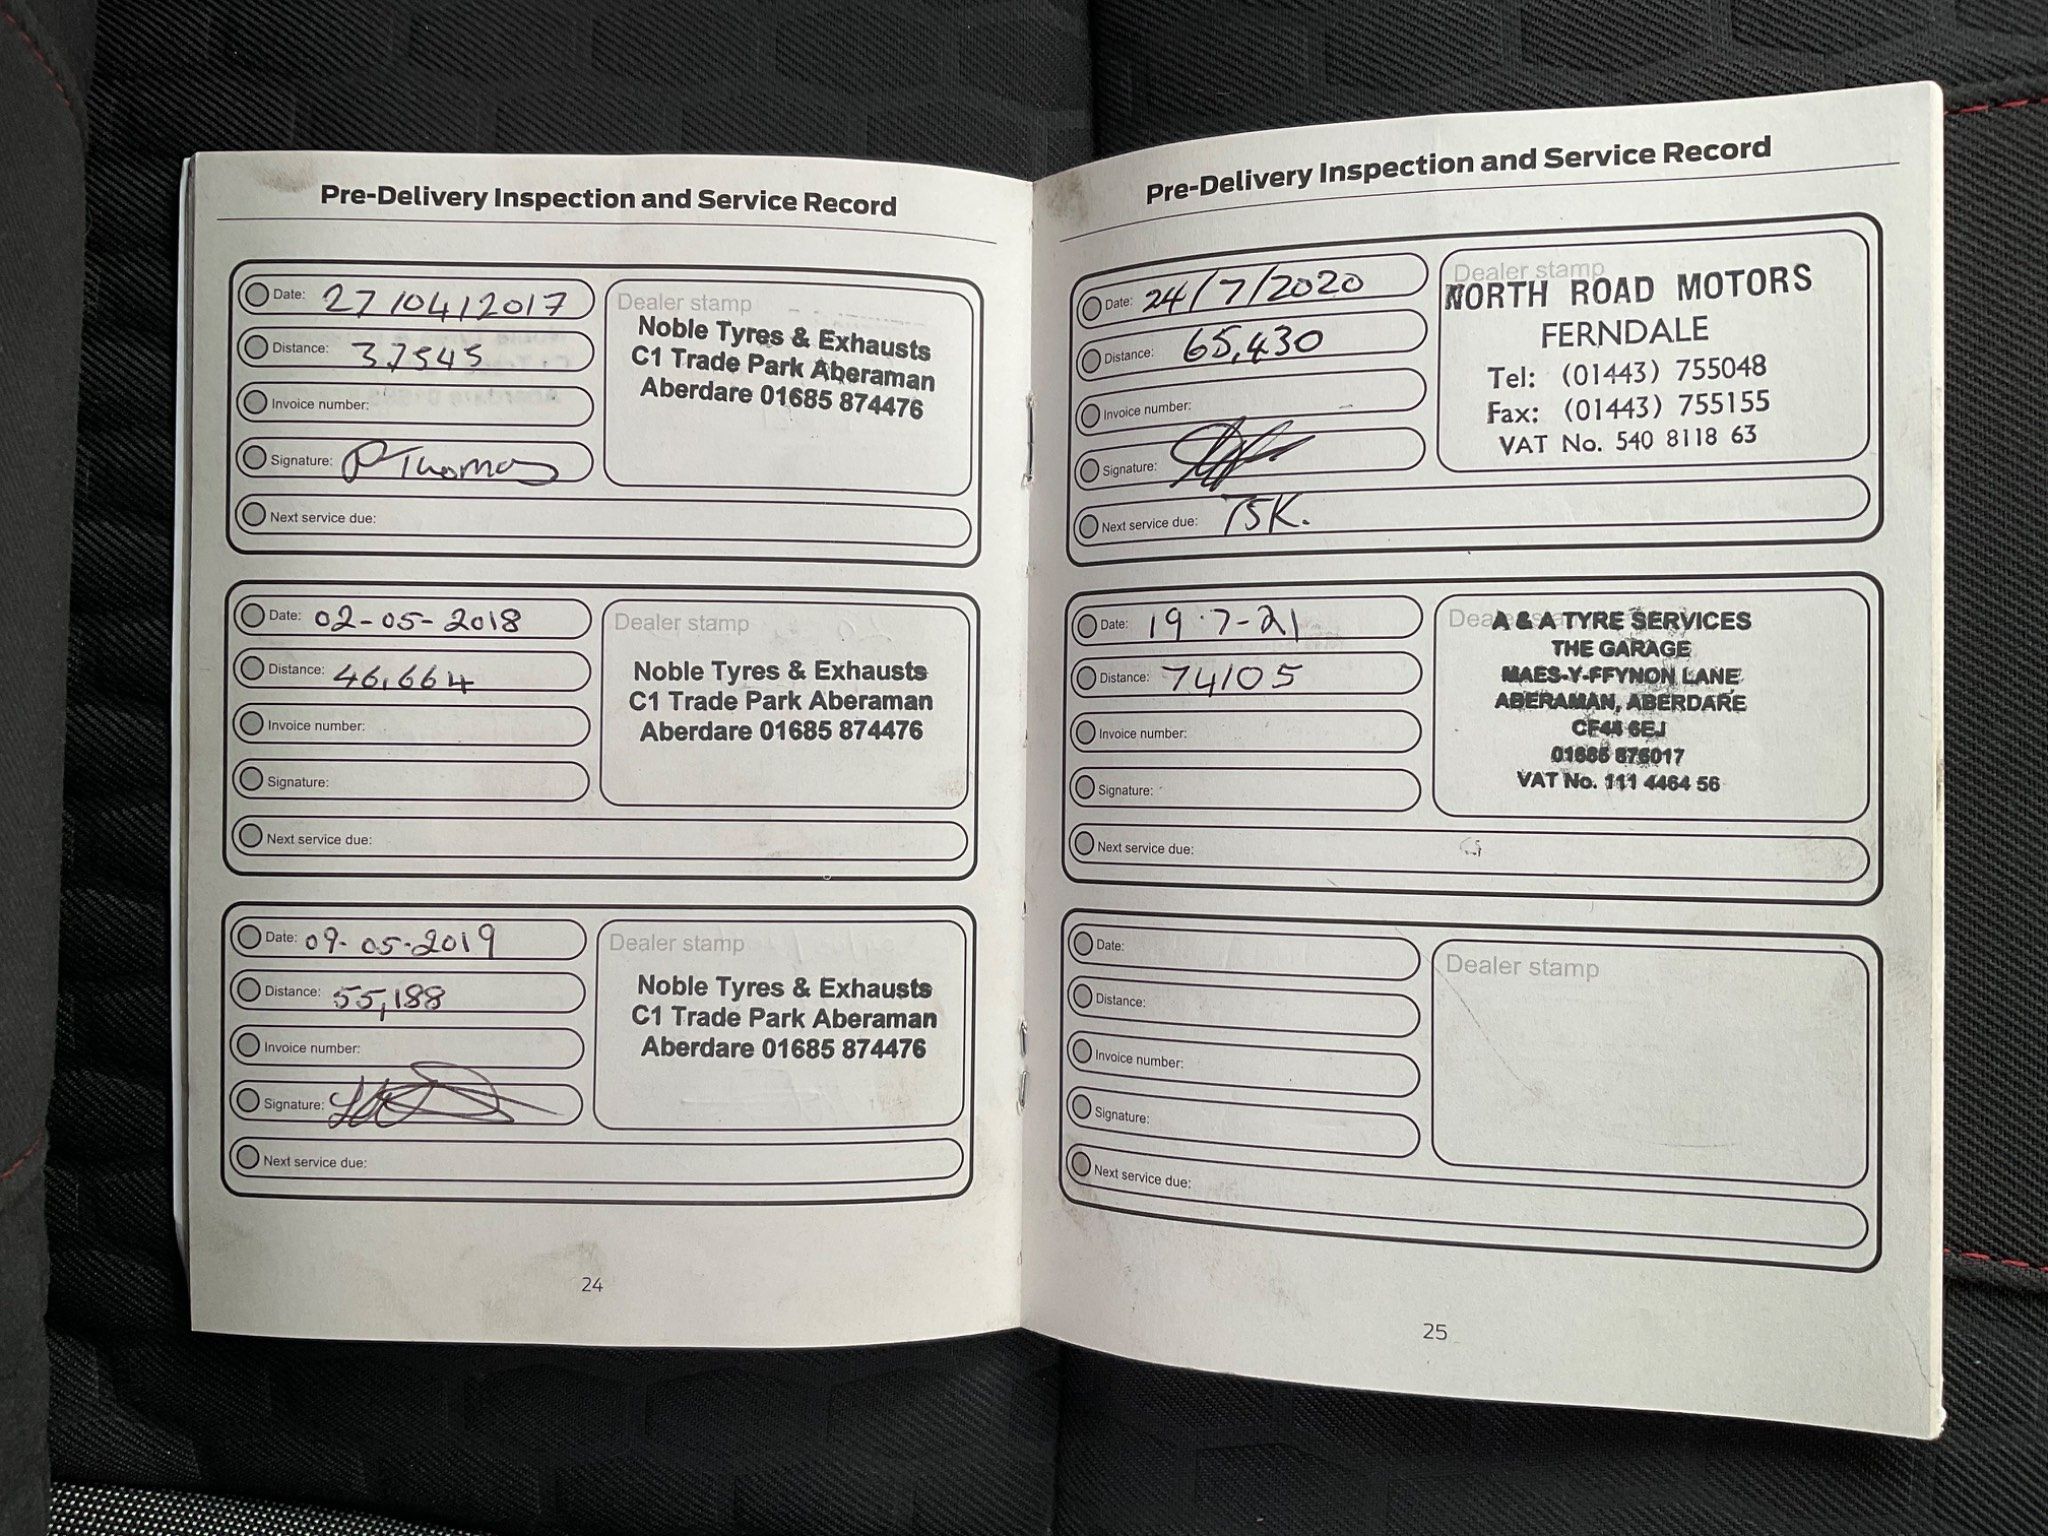 Pre-Delivery Inspection and Service Record
Date: 27/04/2017
Distance: 37545
Invoice number:
Signature: P Thomas
Next service due:
Dealer stamp
Noble Tyres & Exhausts
C1 Trade Park Aberaman
Aberdare 01685 874476
Date: 02-05-2018
Distance: 46,664
Invoice number:
Signature:
Next service due:
Dealer stamp
Noble Tyres & Exhausts
C1 Trade Park Aberaman
Aberdare 01685 874476
Date: 09-05-2019
Distance: 55,188
Invoice number:
Signature:
Next service due:
Dealer stamp
Noble Tyres & Exhausts
C1 Trade Park Aberaman
Aberdare 01685 874476
24
Pre-Delivery Inspection and Service Record
Date: 24/7/2020
Distance: 65,430
Invoice number:
Signature:
Next service due: 75K.
Dealer stamp
NORTH ROAD MOTORS
FERNDALE
Tel: (01443) 755048
Fax: (01443) 755155
VAT No. 540 8118 63
Date: 19.7-21
Distance: 74105
Invoice number:
Signature:
Next service due:
Dealer stamp
A & A TYRE SERVICES
THE GARAGE
MAES-Y-FFYNON LANE
ABERAMAN, ABERDARE
CF44 6EJ
01685 876017
VAT No. 111 4464 56
Date:
Distance:
Invoice number:
Signature:
Next service due:
Dealer stamp
25